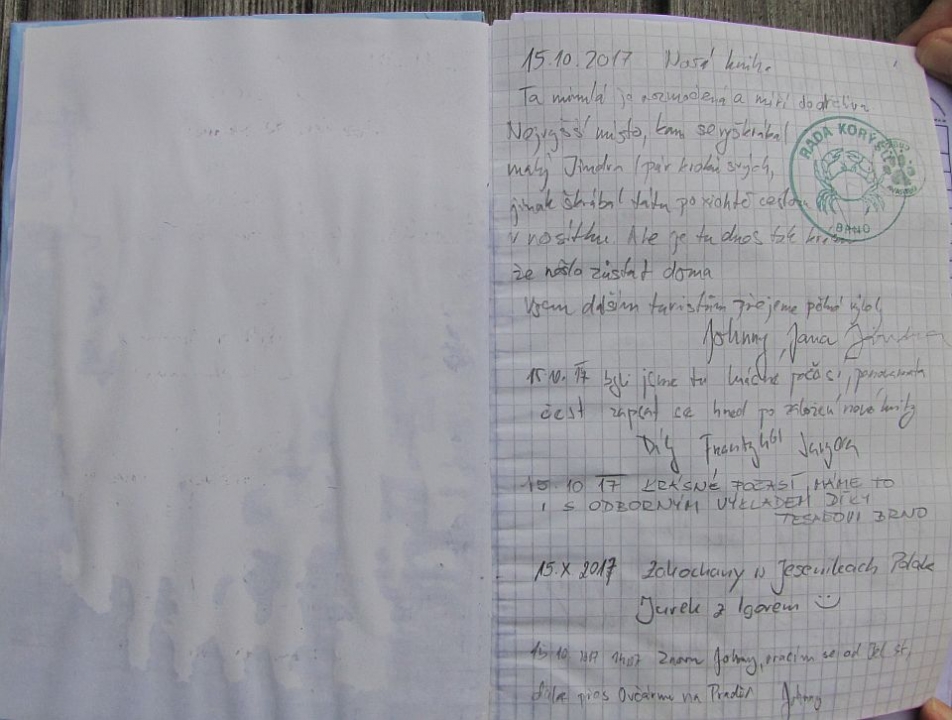 15.10.2017 Nová kniha
Ta minulá je rozmočená a míří do archivu
Nejvyšší místo, kam se vyškrábal
malý Jindra (pár kroků svých,
jinak škrábal tátu po
v nosítku. Ale je tu dnes tak krásně
že nešlo zůstat doma
všem dalším turistům přejeme pěkné výlety
Johnny, Jana
RADA KORY
BRNO
15.10.17 byli jsme tu krásné počasí,
čest zapsat se hned po založení nové knihy
Díky
15.10 17 KRÁSNÉ POČASÍ, MÁME TO
I S ODBORNÝM VÝKLADEM DÍKY
BRNO
15.X 2017 Zakochany w Jesenikach Polak
Jurek z Igorem
15.10.2017 Johnny, se od
dále přes Ovčárnu na Praděd Johnny